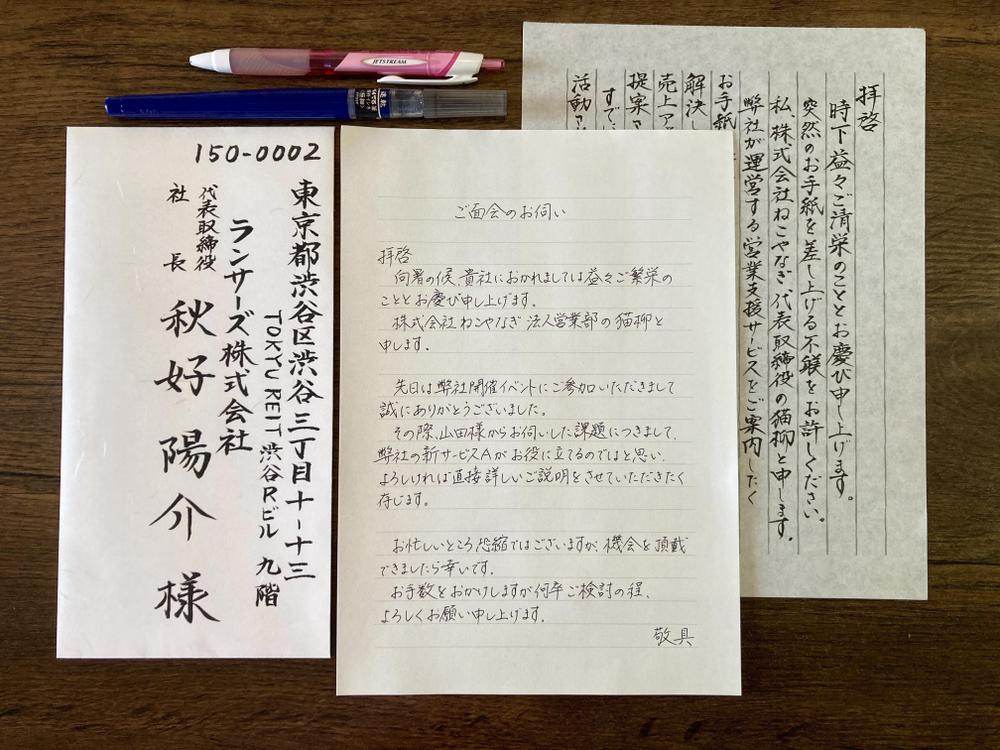 JETSTREAM
150-0002
東京都渋谷区渋谷三丁目十-十三
TOKYU REIT 渋谷Rビル 九階
ランサーズ株式会社
代表取締役
社長
秋好陽介様
ご面会のお伺い
拝啓
向暑の候、貴社におかれましては益々ご繁栄の
こととお慶び申し上げます。
株式会社ねこやなぎ 法人営業部の猫柳と
申します。
先日は弊社開催イベントにご参加いただきまして
誠にありがとうございました。
その際、山田様からお伺いした課題につきまして、
弊社の新サービスAがお役に立てるのではと思い、
よろしければ直接詳しいご説明をさせていただきたく
存じます。
お忙しいところ恐縮ではございますが、機会を頂戴
できましたら幸いです。
お手数をおかけしますが何卒ご検討の程、
よろしくお願い申し上げます。
敬具
拝啓
時下益々ご清栄のこととお慶び申し上げます。
突然のお手紙を差し上げる不躾をお許しください。
私、株式会社ねこやなぎ代表取締役の猫柳と申します。
弊社が運営する営業支援サービスをご案内したく
お手紙
解決し
売上ア
提案さ
すで
活動